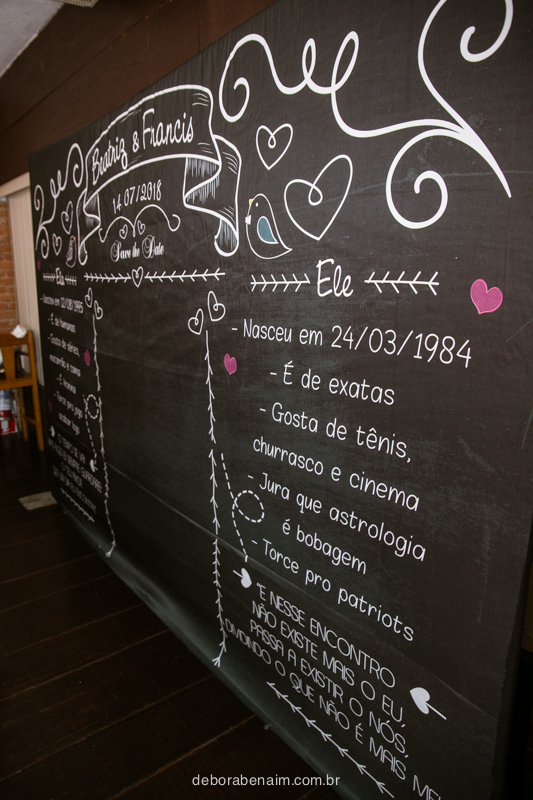 Beatriz & Francis
14 07/2018
Save the Date
Ela
- É de humanas
- Gosta de séries,
Ele
- Nasceu em 24/03/1984
- É de exatas
- Gosta de tênis,
churrasco e cinema
- Jura que astrologia
é bobagem
- Torce pro patriots
"E NESSE ENCONTRO
NÃO EXISTE MAIS O EU,
PASSA A EXISTIR O NÓS,
O QUE NÃO É MAIS
deborabenaim.com.br